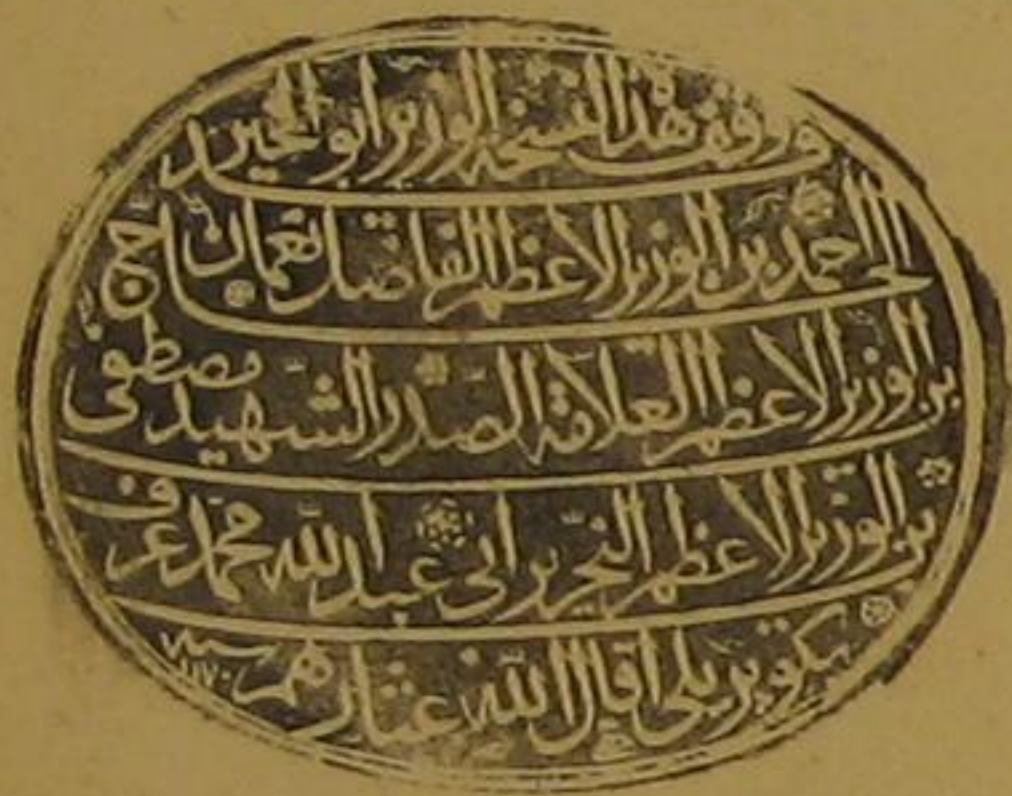 وقف هذا النسخه الوزير ابو الخير
الحاج احمد بن الوزير الاعظم الفاضل نعمان
بن الوزير الاعظم العلامة الصدر الشهيد مصطفى
بن الوزير الاعظم النحرير ابي عبد الله محمد عرف
بكوپريلى اقال الله عثارهم سنه ١١٧٠